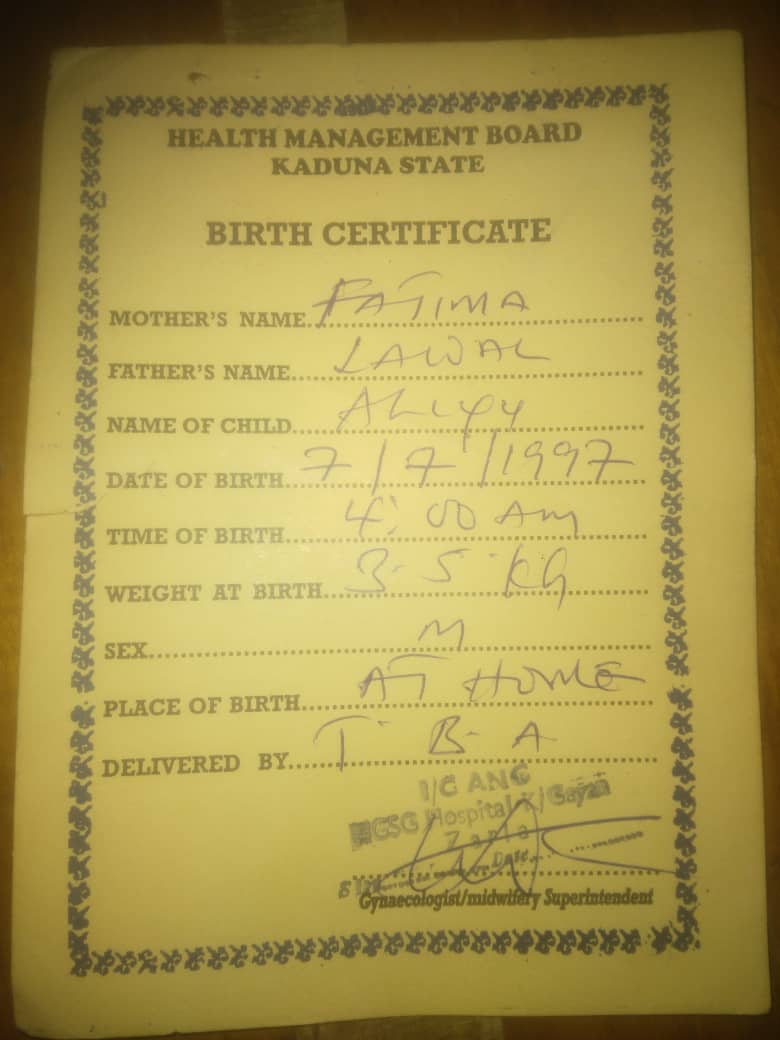 HEALTH MANAGEMENT BOARD
KADUNA STATE
BIRTH CERTIFICATE
MOTHER'S NAME FATIMA
FATHER'S NAME LAWAL
NAME OF CHILD ALIYY
DATE OF BIRTH 7/7/1997
TIME OF BIRTH 4:00 AM
WEIGHT AT BIRTH 3.5 KG
SEX M
PLACE OF BIRTH AT HOME
DELIVERED BY T.B.A
I/C ANC
Hospital K/Gayan
Zaria
Date
Gynaecologist/midwifery Superintendent